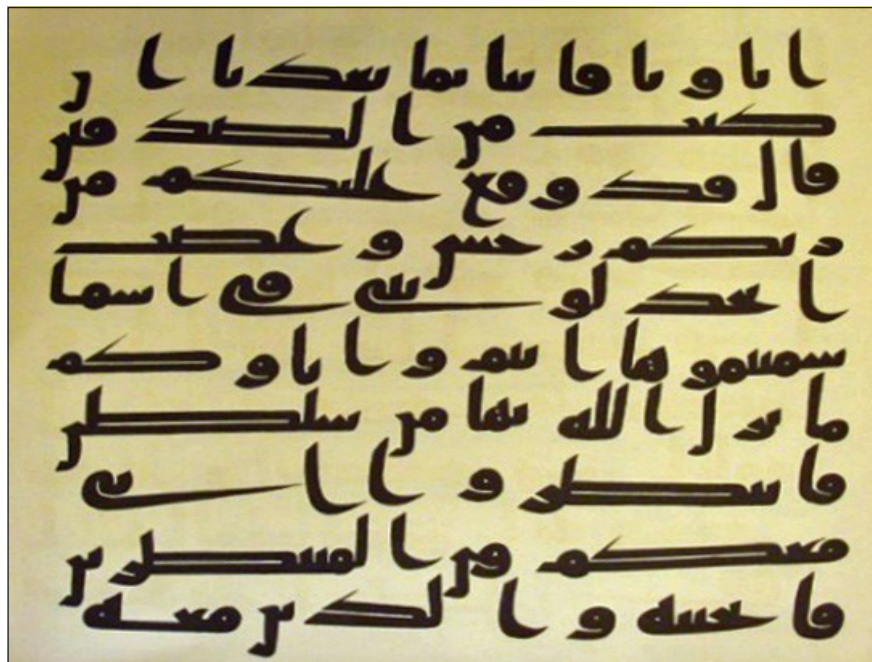 اباونا فاتنا بما تعدنا ان
كنت من الصدقين
قال قد وقع عليكم من
ربكم رجس وغضب
اتجدلونني في اسما
سميتموها انتم واباوكم
ما نزل الله بها من سلطن
فانتظروا اني
معكم من المنتظرين
فانجينه والذين معه